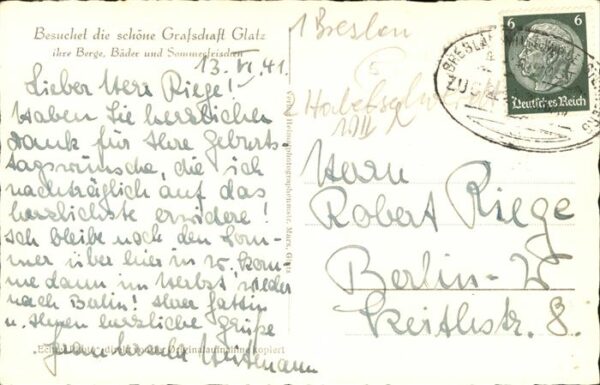 Besuchet die schöne Grafschaft Glatz
ihre Berge, Bäder und Sommerfrischen
13. VI. 41.
Lieber Herr Riege!
Haben Sie herzlichen
Dank für Ihre Geburts-
tagswünsche, die ich
nachträglich auf das
herzlichste erwidere!
Ich bleibe noch den Som-
mer über hier in W. Kom-
me dann im Herbst wieder
nach Berlin! Ihrer Gattin
u. Ihnen herzliche Grüße
Verlag Heimatphotographenmstr. Marx, Glatz
1 Breslau
Habelschwerdt
Herrn
Robert Riege
Berlin-W
Keithstr. 8.
6 6
Deutsches Reich
BRESLAU
ZUG